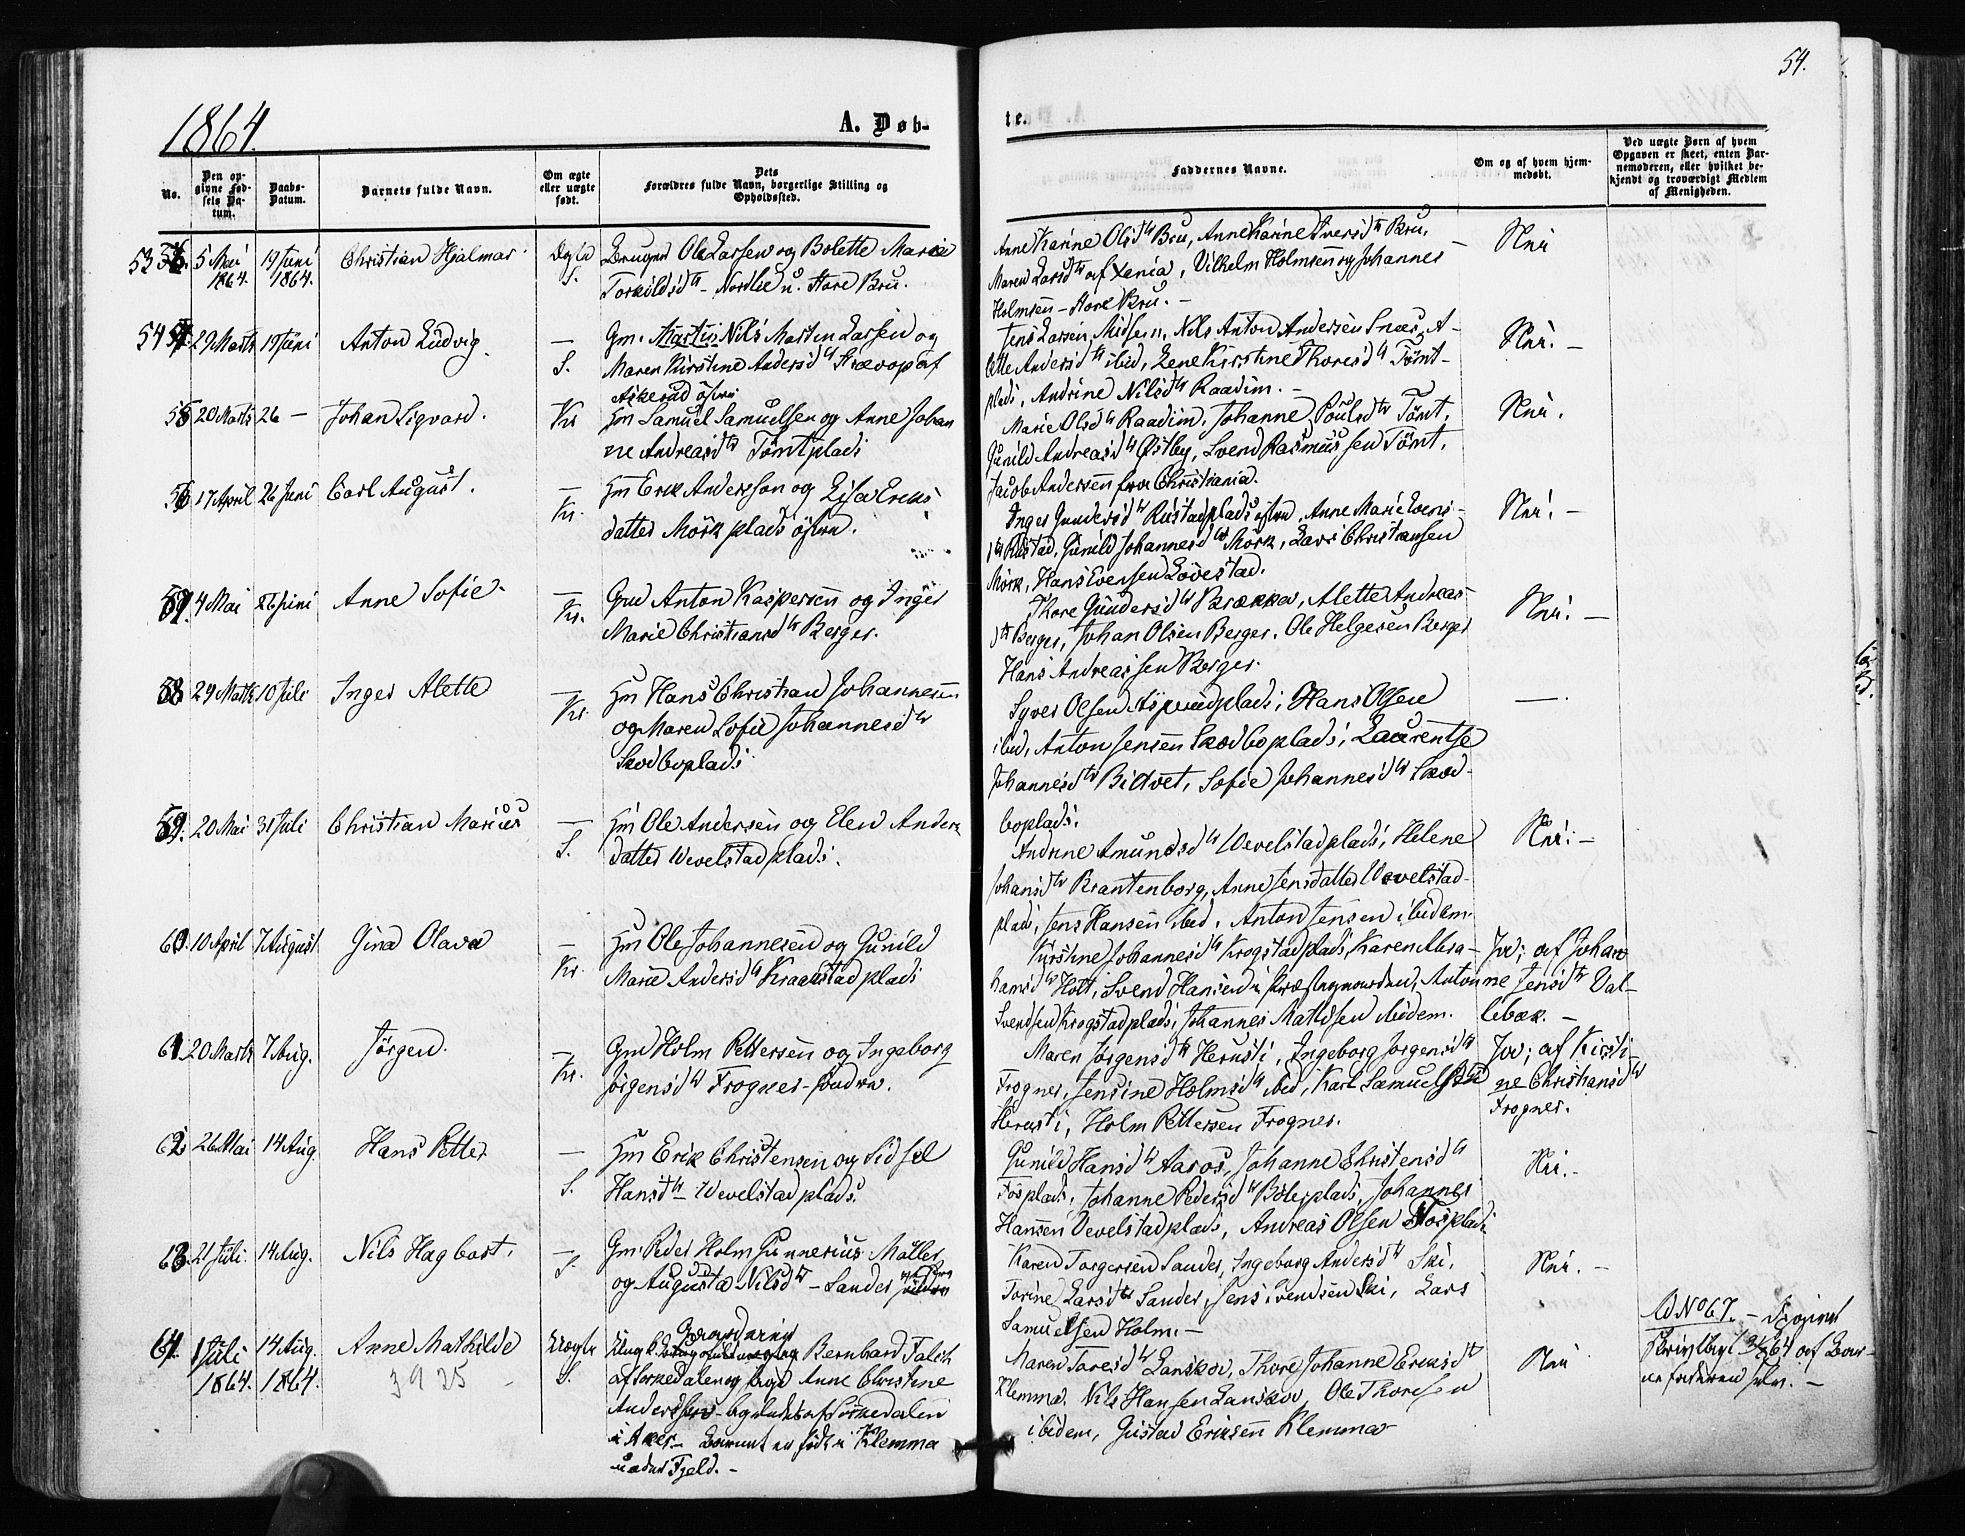 54.
1864.
A. Døb-
te.
No.
Den op-
givne Fød-
sels Da-
tum.
Daabs-
Datum.
Barnets fulde Navn.
Om ægte
eller uægte
født.
Dets
Forældres fulde Navn, borgerlige Stilling og
Opholdssted.
Faddernes Navne.
Om og af hvem hjem-
medøbt.
Ved uægte Børn af hvem
Opgaven er skeet, enten Bar-
nemoderen, eller hvilket be-
kjendt og troværdigt Medlem
af Menigheden.
53 5 Mai 1864. 19 Juni 1864. Christian Hjalmar Ægte S.
Bruger Ole Larsen og Bolette Marie
Torkildsdtr - Nordlie u. Store Bru.
Anne Karine Olsdtr Bru, Anne Karine Iversdtr Bru,
Maren Larsdtr af Xenia, Vilhelm Holmsen og Johannes
Holmsen - Store Bru. -
Nei
54 29 Marts 19 Juni Anton Ludvig. — S.
Gm. Martin Nils Martin Larsen og
Maren Kirstine Andersdtr Krævop af
Askerud østre
Jens Larsen Midsem, Nils Anton Andersen Snees, A-
lette Andersdtr ibid, Lene Kirstine Thoresdtr Tømt-
plads, Andrine Nilsdtr Raadim. -
Nei. -
55 20 Marts 26 — Johan Sigvard. Kr
Hm Samuel Samuelsen og Anne Johan
ne Andreasdtr Tømtplads
Marie Olsdtr Raadim, Johanne Poulsdtr Tømt,
Gunild Andreasdtr Østby, Svend Rasmussen Tømt,
Jacob Andersen fra Christiania.
Nei.
56 17 April 26 Juni Carl August. — Kr.
Hm Erik Andersson og Lisa Eriks
datter Mörk plads østre.
Inger Gundersdtr Rustadplads østre, Anne Marie Evens-
dtr Rustad, Gunild Johannesdtr Mörk, Lars Christiansen
Mörk, Hans Evensen Løvestad.
Nei. -
57. 4 Mai 26 Juni Anne Sofie. — Kr.
Gm Anton Kaspersen og Inger
Marie Christiansdtr Berger.
Thore Gundersdtr Brække, Alette Andreas-
dtr Berger, Johan Olsen Berger, Ole Helgesen Berger
Hans Andreassen Berger.
Nei. -
58 29 Marts 10 Juli Inger Alette — Kr.
Hm Hans Christian Johannesen
og Maren Sofie Johannesdtr
Skodboplads
Syver Olsen Aspundplads, Hans Olsen
ibid, Anton Jensen Skodboplads, Laurentse
Johannesdtr Bidtvet, Sofie Johannesdtr Skod-
boplads.
—
59. 20 Mai 31 Juli Christian Marius — S.
Hm Ole Andersen og Elen Anders
datter Wevelstadplads.
Andrine Amundsdtr Wevelstadplads, Helene
Johansdtr Brantenborg, Anne Jensdatter Wevelstad-
plads, Jens Hansen ibid, Anton Jensen ibidem.
Nei. -
60. 10 April 7 August Gina Olava — Kr.
Hm Ole Johannesen og Gunild
Marie Andersdtr Kraakstadplads
Kirstine Johannesdtr Krogstadplads, Karen Abra-
hamsdtr Holt, Svend Hansen i Præstegaarden, Anton
Svendsen Krogstadplads, Johannes Mathisen ibidem.
Jo; af Johan
ne Jensdtr Val-
lebæk. -
61. 20 Marts 7 Aug. Jørgen. — Kr.
Gm Holm Pettersen og Ingeborg
Jørgensdtr Frogner søndre.
Maren Jørgensdtr Herusti, Ingeborg Jørgensdtr
Frogner, Jensine Holmsdtr ibid, Karl Samuelsen
Herusti, Holm Pettersen Frogner.
Jo; af Kirsti-
ne Christiansdtr
Frogner.
62 26 Mai 14 Aug. Hans Petter — S.
Hm Erik Christensen og Sidsel
Hansdtr Wevelstadplads.
Gunild Hansdtr Aaros, Johanne Christensdtr
Fosplads, Johanne Pedersdtr Bölerplads, Johannes
Hansen Vevelstadplads, Andreas Olsen Fosplads
Nei. -
63. 21 Juli 14 Aug. Nils Hagbart. — S.
Gm. Peder Holm Gunnerius Møller
og Augusta Nilsdtr - Sander
Karen Torgersen Sander, Ingeborg Andersdtr Ski,
Torine Larsdtr Sander, Jens Svendsen Ski, Lars
Samuelsen Holm. -
Nei. -
64. 1 Juli 1864. 14 Aug. 1864. Anne Mathilde Uægte S.
3925
Ungk. Bernhard Falch
af Sørkedalen og Pige Anne Christine
Andersen - begge af Sørkedalen
i Aker - Barnet er født i Klemma
under Fjeld. -
Maren Toresdtr Lanskov, Thore Johanne Eriksdtr
Klemma, Nils Hansen Lanskov, Ole Thoresen
ibidem, Gustad Eriksen Klemma
Nei
Ad No 67. -
af Bar-
nefaderen selv. -